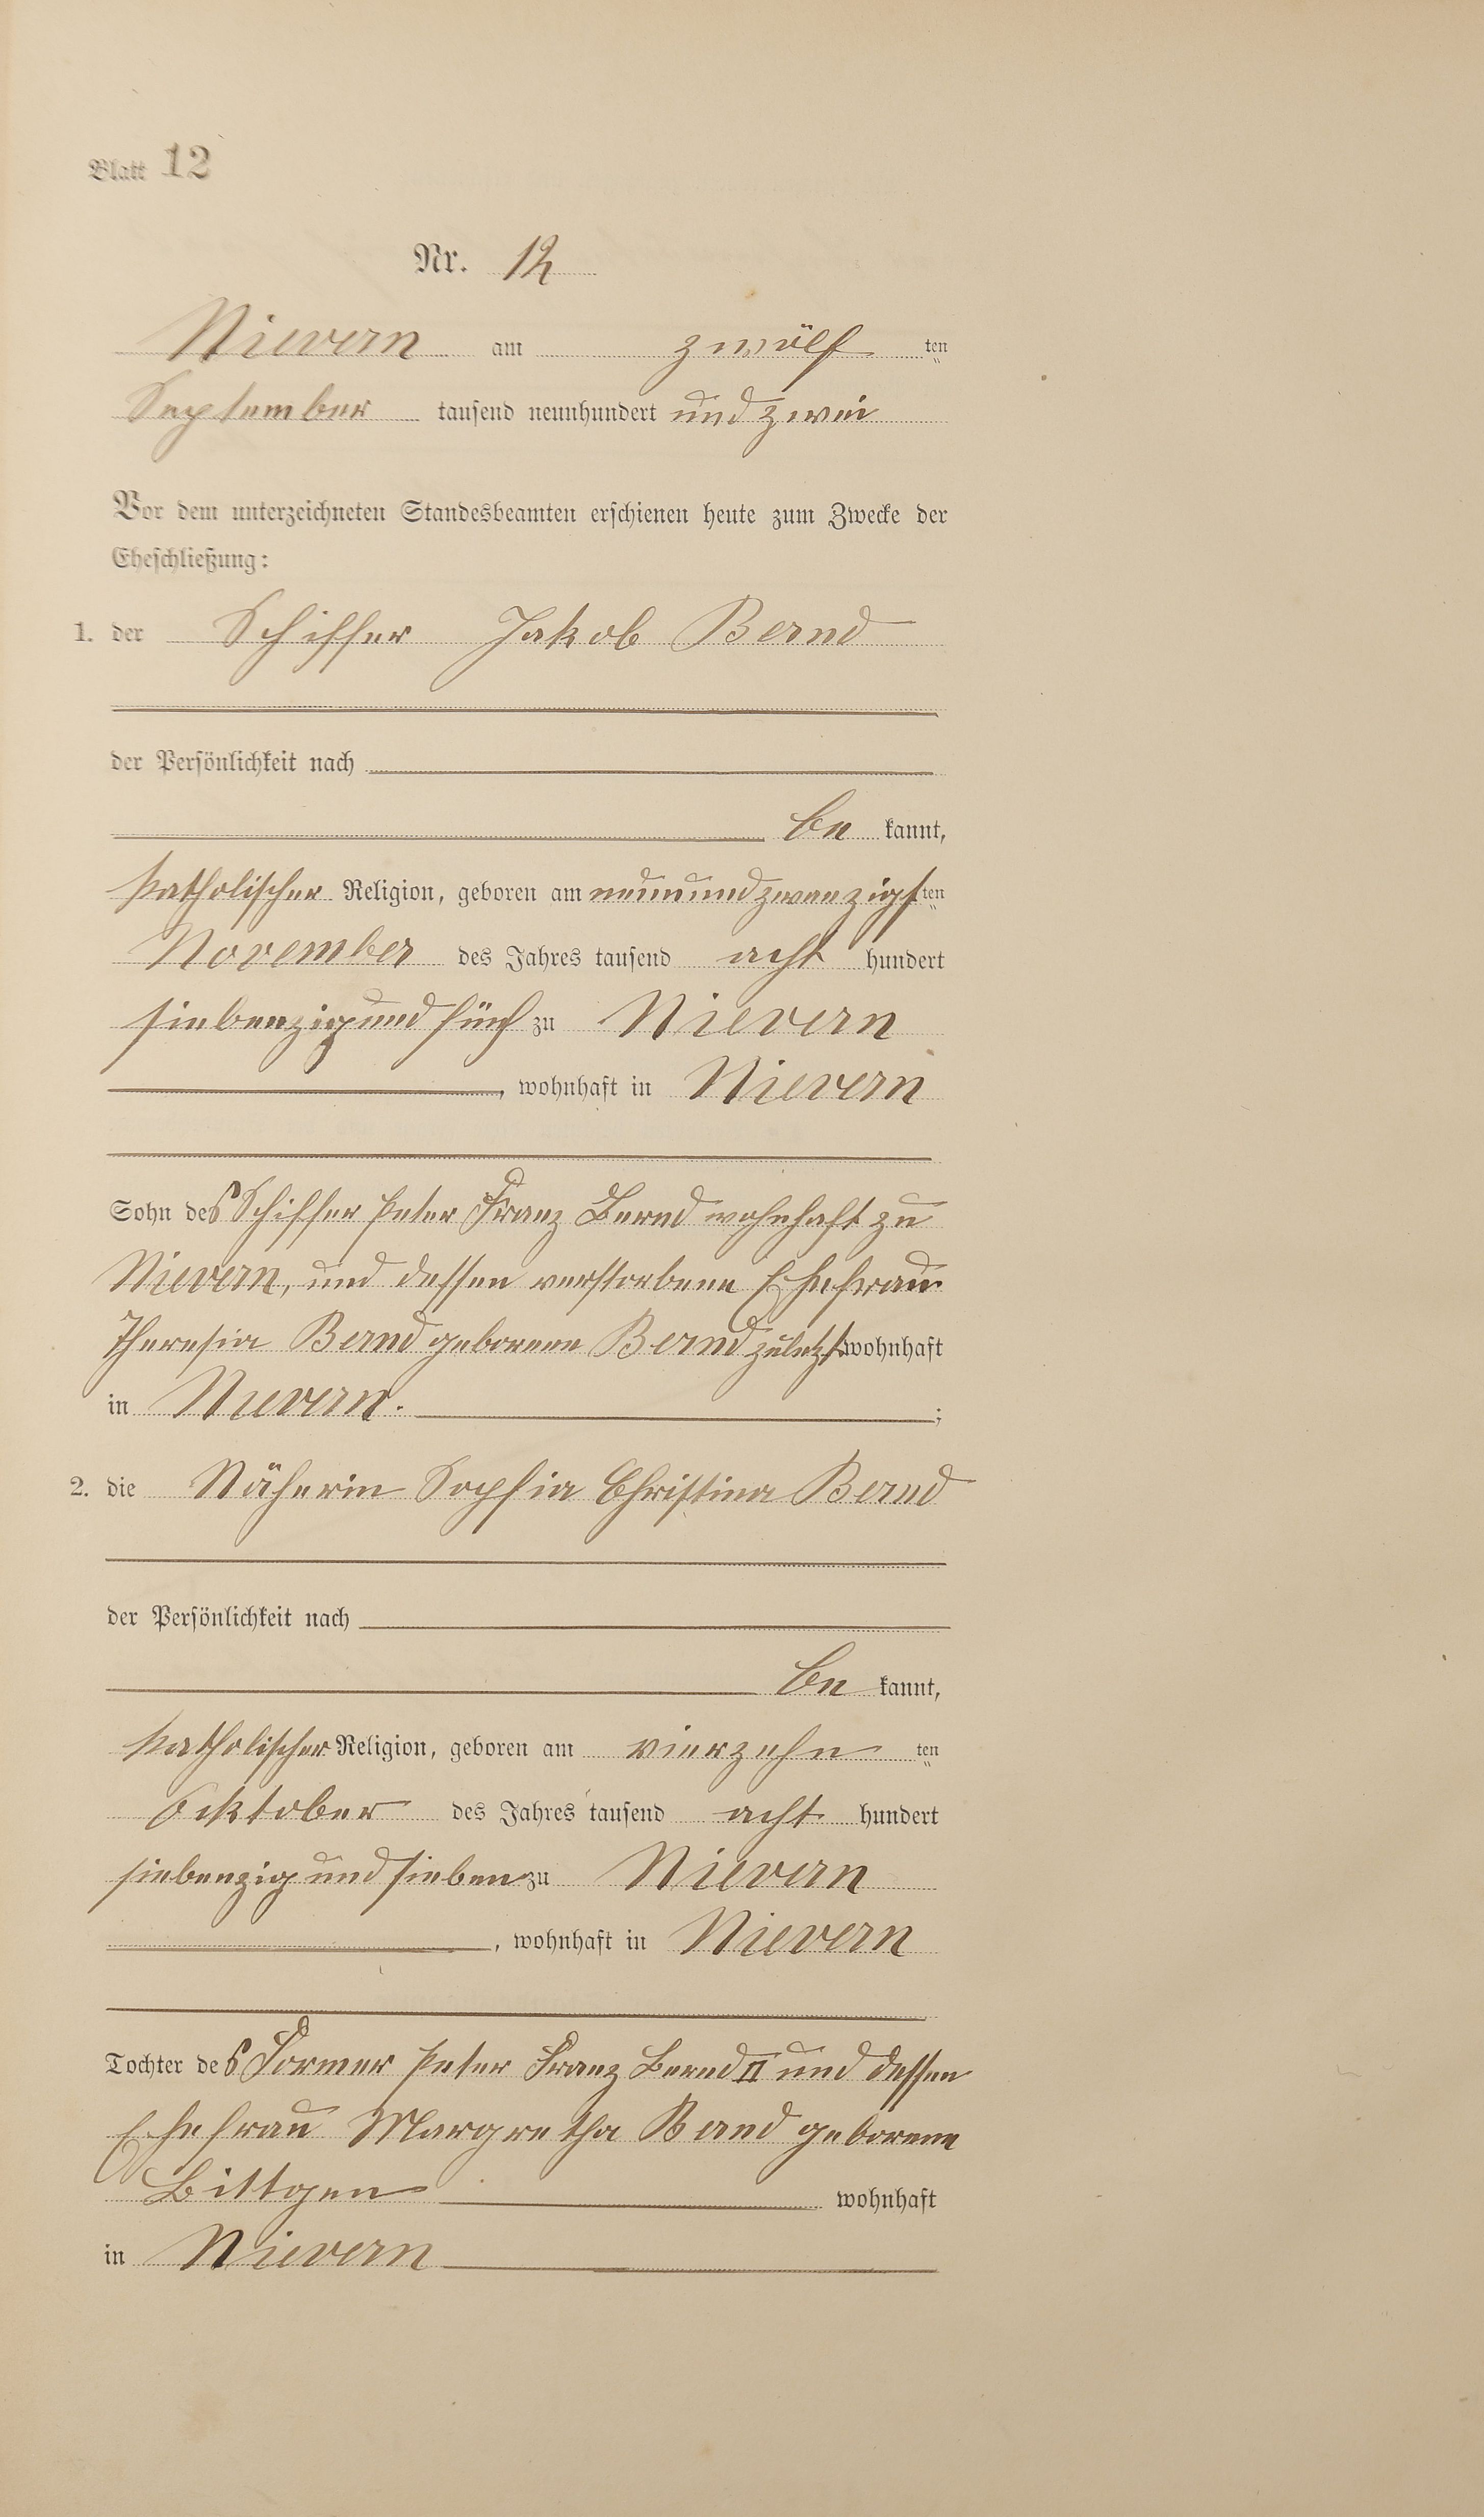 Blatt 12
Nr. 12
Nievern am zwölf ten
September tausend neunhundert und zwei
Vor dem unterzeichneten Standesbeamten erschienen heute zum Zwecke der
Eheschließung:
1. der Schiffer Jakob Bernd
der Persönlichkeit nach
be kannt,
katholischer Religion, geboren am neunundzwanzigsten
November des Jahres tausend acht hundert
siebenzig und fünf zu Nievern
, wohnhaft in Nievern
Sohn des Schiffer Peter Franz Bernd wohnhaft zu
Nievern, und dessen verstorbene Ehefrau
Theresia Bernd geborene Bernd zuletzt wohnhaft
in Nievern. ;
2. die Näherin Sophia Christina Bernd
der Persönlichkeit nach
be kannt,
katholischer Religion, geboren am vierzehn ten
Ocktober des Jahres tausend acht hundert
siebenzig und sieben zu Nievern
, wohnhaft in Nievern
Tochter des Former Peter Franz Bernd II und dessen
Ehefrau Margretha Bernd geborene
Bittgen wohnhaft
in Nievern